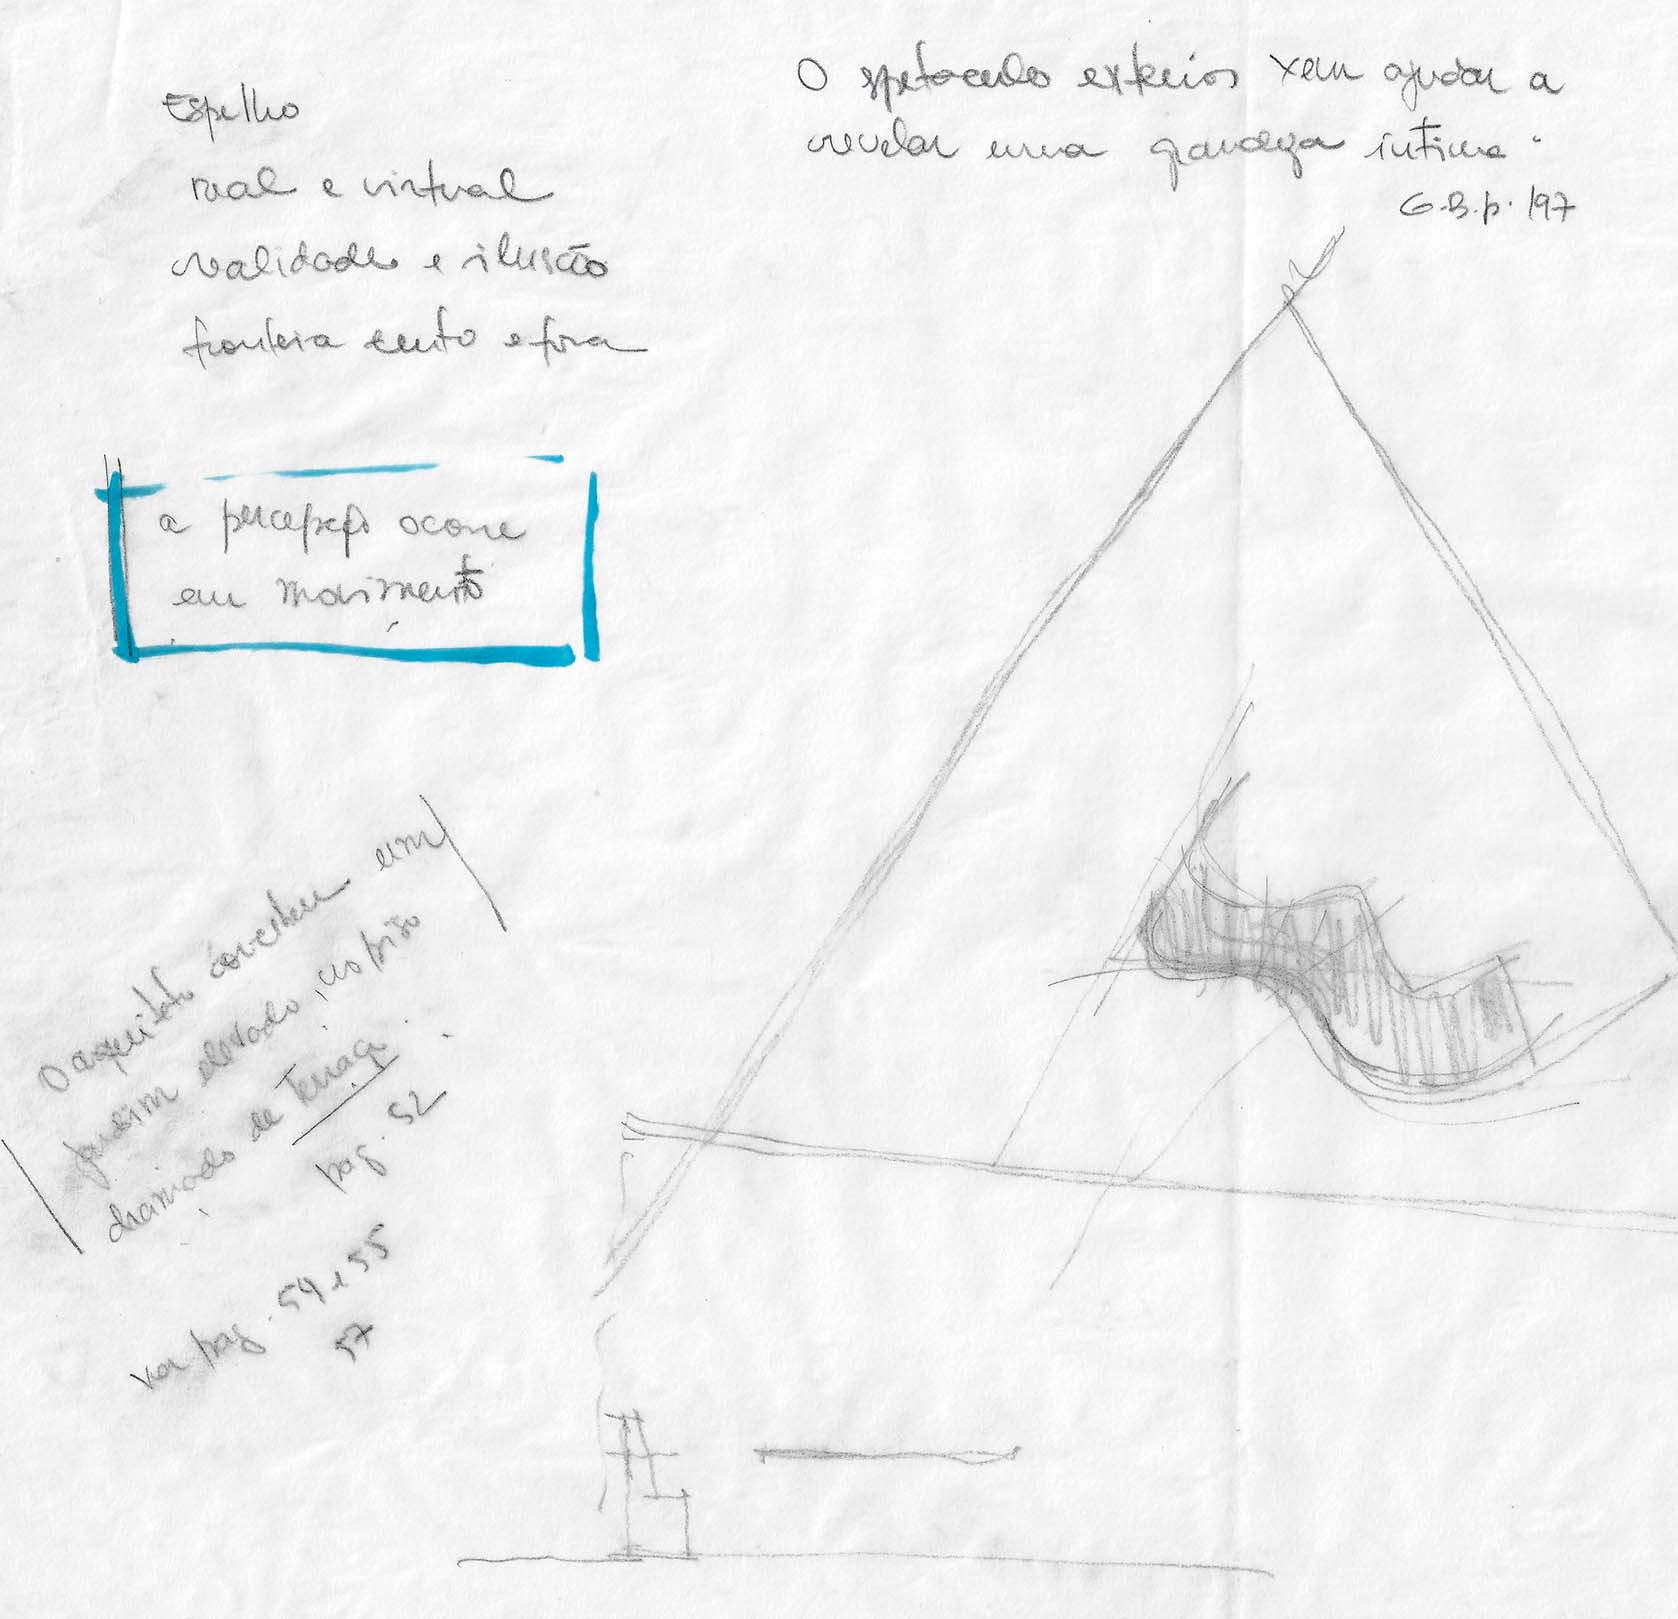 Espelho
real e virtual
realidade e ilusão
fronteira dentro e fora
O espetaculo exterior vem ajudar a
revelar uma grandeza intima"
G.B.p. 197
a percepção ocorre
em movimento
O arquiteto converteu um
jardim elevado, no piso
chamado de Terraço
pag. 52
ver pag. 54 e 55
57